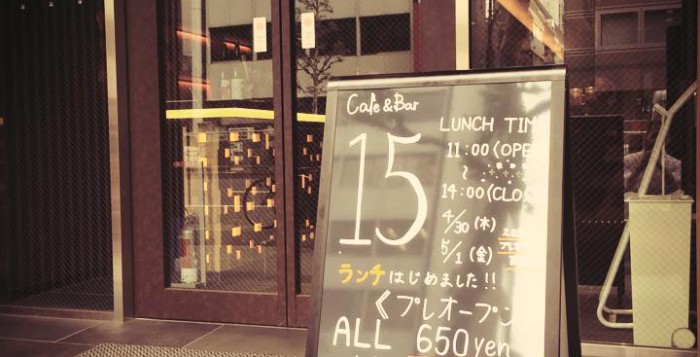 Cafe & Bar
15
LUNCH TIM
11:00 (OPE
~
14:00 (CLOS
4/30 (木)
5/1 (金)
ランチはじめました!!
《プレオープン
ALL 650yen